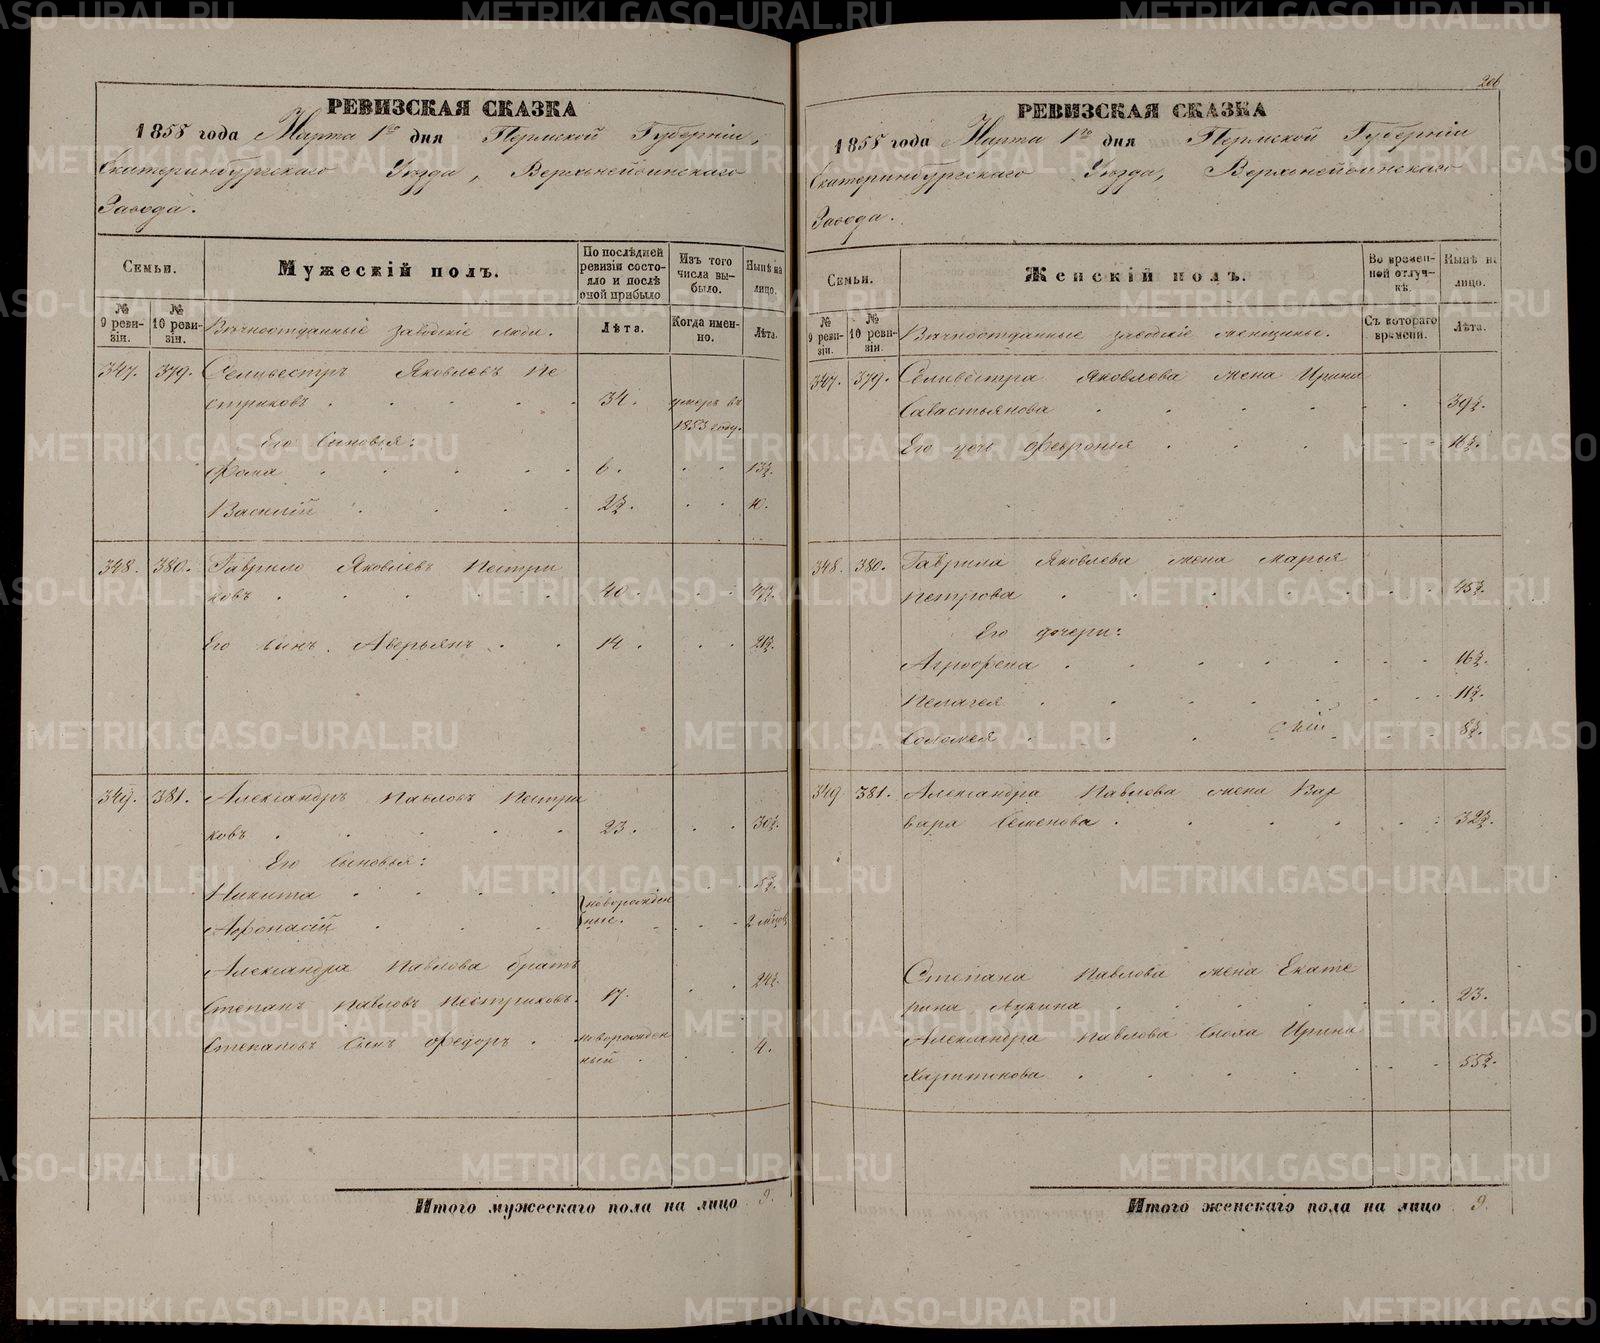 РЕВИЗСКАЯ СКАЗКА
1855 года Марта 1го дня Пермской Губерніи,
Екатеринбургскаго Уѣзда, Верхнейвинскаго
Завода.
Семьи.
Мужескій полъ.
По послѣдней ревизіи состояло и послѣ оной прибыло
Изъ того числа выбыло.
Нынѣ на лицо.
№ 9 ревизіи.
№ 10 ревизіи.
Вѣчноотданные заводскіе люди.
Лѣта.
Когда именно.
Лѣта.
347. 379. Селивестръ Яковлевъ Пе
стриковъ . 34. умеръ въ 1853 году.
Его Сыновья:
Фома 6. 13½.
Василій 2½. 10.
348. 380. Гаврило Яковлевъ Пестри
ковъ . 40. 47½.
Его сынъ Аверьянъ . 14. 21½.
349. 381. Александръ Павловъ Пестри
ковъ . 23. 30½.
Его Сыновья:
Никита 5½.
новорожден
Афонасій ные. 2 мѣсяц
Александра Павлова братъ
Степанъ Павловъ Пестриковъ. 17. 24½.
Степановъ Сынъ Федоръ . новорожден 4.
ный
Итого мужескаго пола на лицо 9.
206
РЕВИЗСКАЯ СКАЗКА
1855 года Марта 1го дня Пермской Губерніи
Екатеринбургскаго Уѣзда, Верхнейвинскаго
Завода.
Семьи.
Женскій полъ.
Во временной отлучкѣ.
Нынѣ на лицо.
№ 9 ревизіи.
№ 10 ревизіи.
Вѣчноотданные заводскіе женщины.
Съ котораго времени.
Лѣта.
347. 379. Селивестра Яковлева жена Ирина
Савастьянова 39½.
Его дочь Февронья 16½.
348. 380. Гаврила Яковлева жена Марья
Петрова 45½.
Его дочери:
Агрофена 16½.
Пелагея 11½.
Соломея 8½.
349 381. Александра Павлова жена Вар
вара Семенова 32½.
Степана Павлова жена Екате
рина Лукина 23.
Александра Павлова Ирина
Харитонова 55½.
Итого женскаго пола на лицо 9.
METRIKI.GASO-URAL.RU